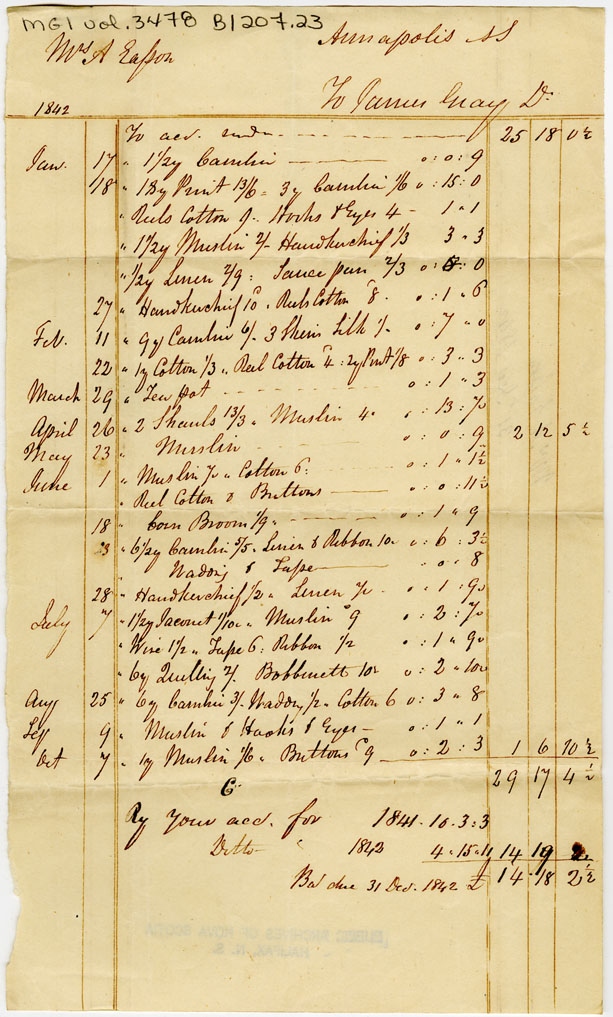 MG1 vol. 3478 B1207.23
Annapolis NS
Mrs A Eason
To James Gray Dr
1842
To acc. rendr 25 18 0½
Jan. 17 " 1½y Cambric 0:0:9
18 " 18y Print 13/6 = 3y Cambric 1/6 0:15:0
" Reels Cotton 9. Hooks & Eyes 4 - 1"1
" 1½y Muslin 2/- Handkerchief 1/3 3"3
" ½y Linen 2/9: Sauce pan 2/3 0: :0
27 " Handkerchief 10 " Reels Cotton 8. 0:1"6
Feb. 11 " 9y Cambric 6/- 3 Skeins Silk 1/- 0:7"0
22 " 1y Cotton 1/3 " Reel Cotton 4: 2y Print 1/8 0:3"3
March 29 " Tea Pot 0:1"3
April 26 " 2 Shauls 13/3 " Muslin 4 0:13:7
May 23 " Musslin 0:0:9 2 12 5½
June 1 " Muslin 7 " Cotton 6: 0:1"1½
" Reel Cotton & Buttons 0:0:11½
18 " Corn Broom 1/9 " 0:1"9
3 " 6½y Cambric 5/5 " Linen & Ribbon 10 0:6:3½
Wadding & Tape 0"0"8
28 " Handkerchief 1/2 " Linen 7 0:1:9
July 7 " 1½y Jaconet 1/10 " Muslin 9 0:2:7
" Wire 1/2 " Tape 6: Ribbon 1/2 0:1"9
" 6y Quilling 2/. Bobbinett 10 0:2"10
Aug 25 " 6y Cambric 3/. Wadding 1/2 " Cotton 6 0:3"8
Sep 9 " Muslin & Hooks & Eyes 0:1"1
Oct 7 " 1y Muslin 1/6 " Buttons 9 0:2:3 1 6 10½
29 17 4½
Cr
By your acc. for 1841 - 10.3:3
Ditto " 1842 4"15"11 14 19 2
Bal due 31 Dec. 1842 £ 14 18 2½
PUBLIC ARCHIVES OF NOVA SCOTIA
HALIFAX, N. S.